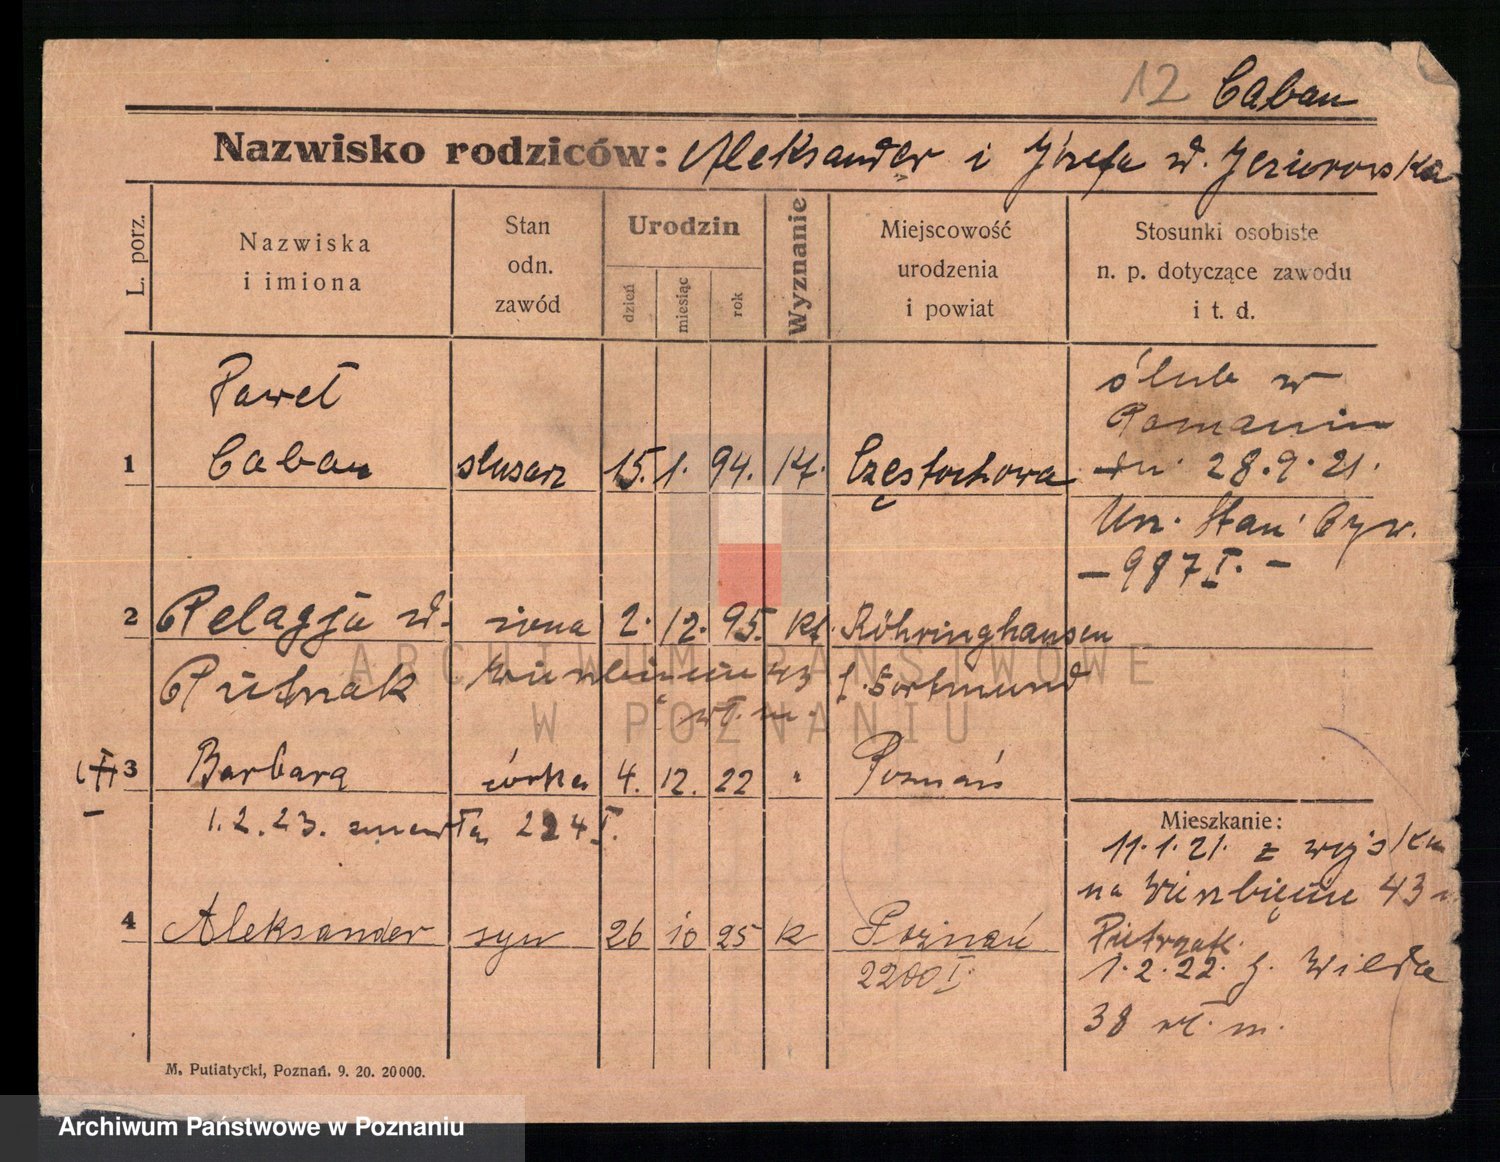 12 Caban
Nazwisko rodziców: Aleksander i Józefa d. Jeziorowska
L. porz.
Nazwiska
i imiona
Stan
odn.
zawód
Urodzin
dzień
miesiąc
rok
Wyznanie
Miejscowość
urodzenia
i powiat
Stosunki osobiste
n. p. dotyczące zawodu
i t. d.
Paweł
1 Caban slusarz 15. 1. 94. kt. Częstochowa
ślub w
Poznaniu
dn. 28.9.21.
Urz. Stan. Cyw.
- 987 I. -
2 Pelagja d. żona 2. 12. 95. kt. Röhringhausen
Putnak Wierzbięcice 43 f. Dortmund
wł. m.
3 Barbara córka 4. 12. 22 " Poznań
1.2.23. zmarła 224 I.
4 Aleksander syn 26 10 25 k Poznań
2200 I.
Mieszkanie:
11.1.21. z wojska
na Wierzbięcice 43
Pietrzak.
1.2.22. g. Wilda
38 wł. m.
M. Putiatycki, Poznań. 9. 20. 20000.
ARCHIWUM PAŃSTWOWE
W POZNANIU
Archiwum Państwowe w Poznaniu